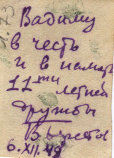 Вадиму
в честь
и в память
11ти летней
дружбы
6.XII.49